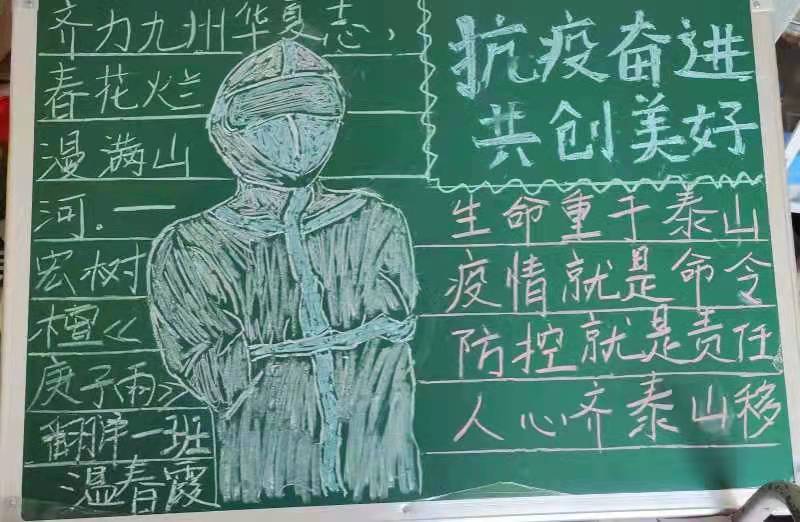 齐力九州华夏志，
春花烂
漫满山
河.一
宏树
檀《
庚子(雨)》
翻胖一班
温春霞
抗疫奋进
共创美好
生命重于泰山
疫情就是命令
防控就是责任
人心齐泰山移